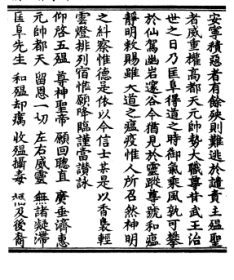 安寧積慈者有餘殃則難逃於譴責主瘟聖
者威重權高都天元帥勢大職尊昔武王治
世之日乃匡阜得道之時御氣乘風孰可攀
於仙駕幽岩邃谷今猶見於靈蹤尊號和瘟
靜明敕賜雖大道之瘟疫惟人所召然神明
之糾察惟德是依以今信士某是以香裊輕
雲燈排列宿惟願降臨謹當讚詠
仰啓五瘟 尊神聖帝 願回聰直 廣垂濟惠
元帥都天 留恩一切 左右威靈 無諸凝滯
匡阜先生 和瘟却癘 收瘟攝毒 及後裔